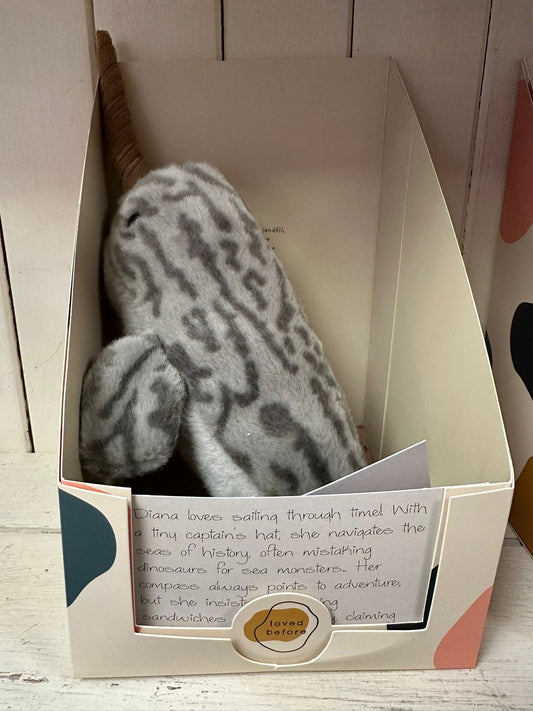 landfill,
Diana loves sailing through time! With
a tiny captain's hat, she navigates the
seas of history, often mistaking
dinosaurs for sea monsters. Her
compass always points to adventure,
but she
sandwiches claiming
loved
before